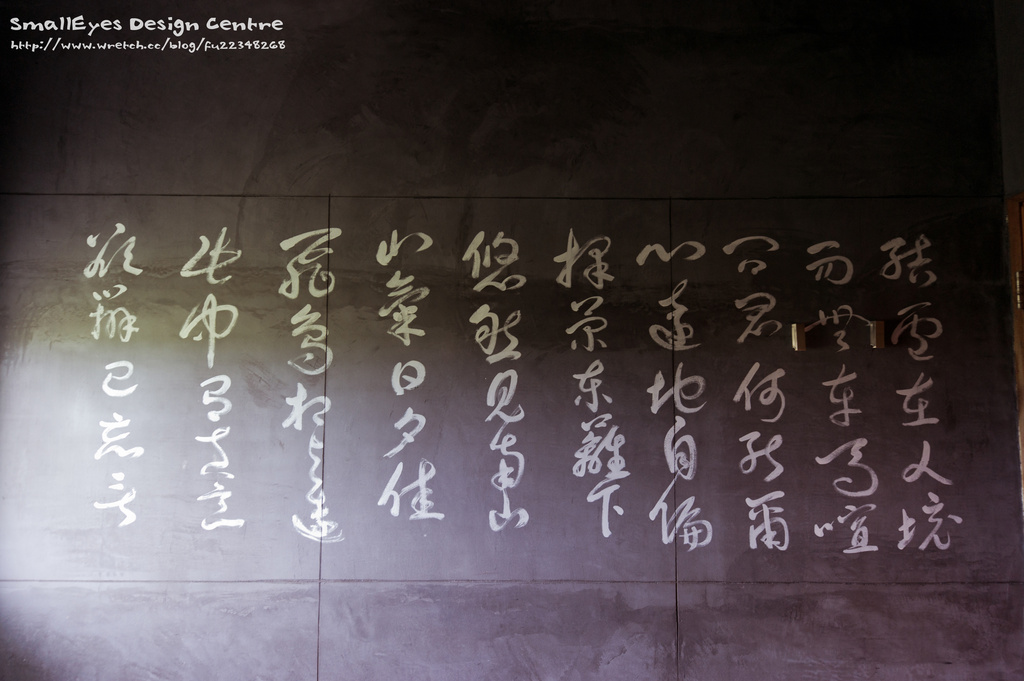 SmallEyes Design Centre
http://www.wretch.cc/blog/fu22348268
結廬在人境
而無車馬喧
問君何能爾
心遠地自偏
採菊東籬下
悠然見南山
山氣日夕佳
飛鳥相與還
此中有真意
欲辨已忘言